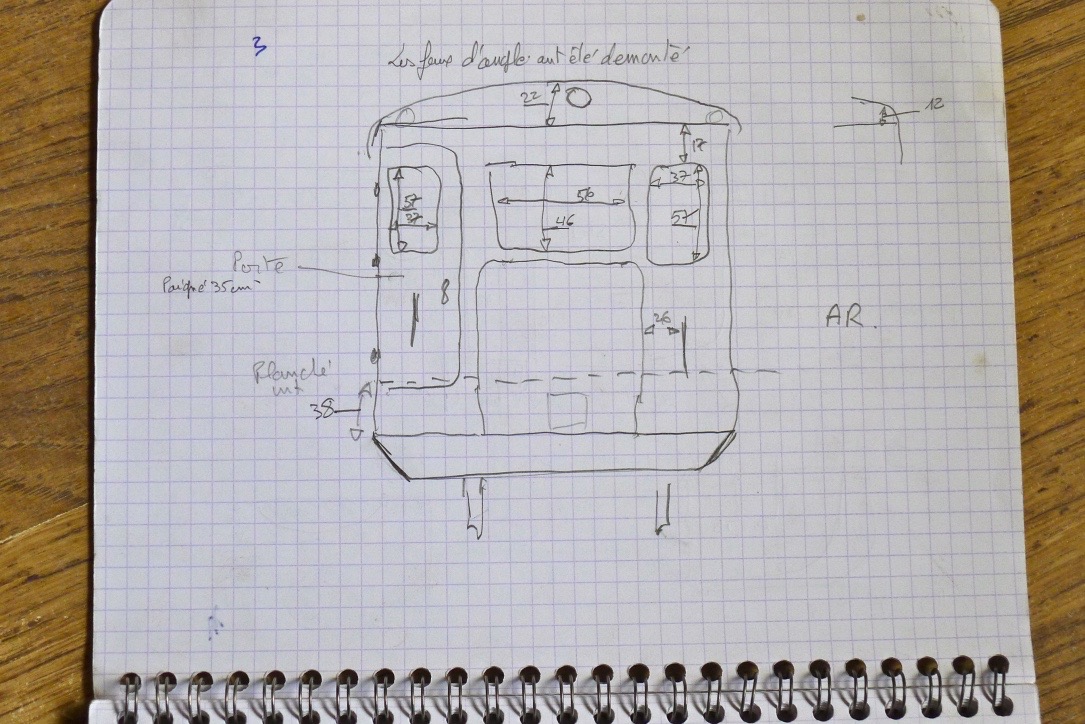 3
Les feux d'angle ont été demonté
22
12
17
37
57
37
56
46
57
Porte
Poigné 35cm
8
26
AR.
Planché
int
38